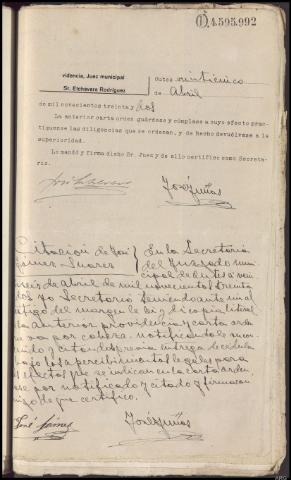 () 4.595.992
videncia, Juez municipal
Sr. Etchavera Rodríguez
Outes veinticinco
de Abril
de mil novecientos treinta y dos
La anterior carta orden guárdese y cúmplase a cuyo efecto prac-
tíquense las diligencias que se ordenan, y de hecho devuélvase a la
superioridad.
Lo mandó y firma dicho Sr. Juez y de ello certifico como Secreta-
rio.
José Juñas
Citación de José
Gómez Suárez
En la Secretaría
del Juzgado muni
cipal de Outes a vein
seis de abril de mil novecientos treinta
dos yo Secretario teniendo ante mí al
testigo del margen le leí y di copia literal
la anterior providencia y carta orden
por cabeza, notificándole
y citándole previa entrega de cédula
bajo los apercibimientos legales para
efectos que se indican en la carta orden
se por notificado y citado y firma con
migo de que certifico.
José Gómez
José Juñas